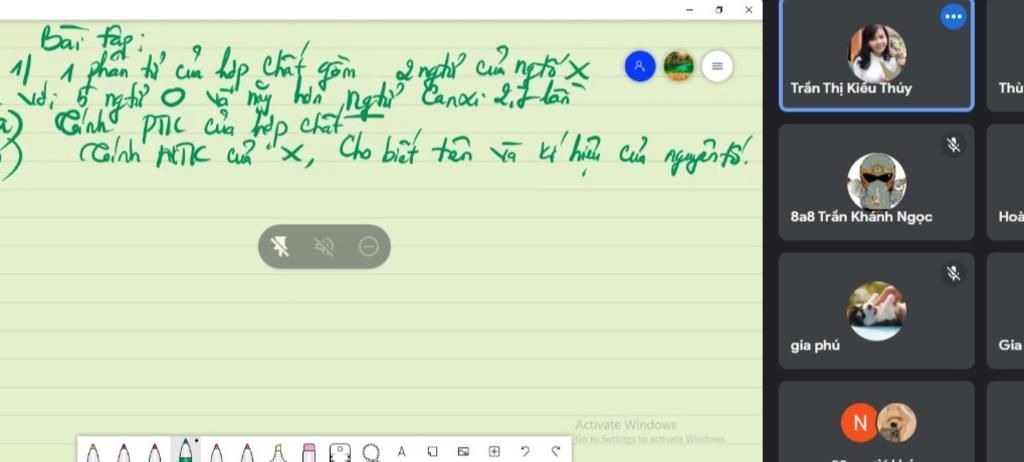 Bài tập:
1/ 1 phân tử của hợp chất gồm 2 ngtử của ngtố X
với 5 ngtử O và nặng hơn ngtử Canxi 2,7 lần
a) Tính PTK của hợp chất
) Tính NTK của X, Cho biết tên và kí hiệu của nguyên tố.
Trần Thị Kiều Thúy
Thù
8a8 Trần Khánh Ngọc
Hoà
gia phú
Gia
N
A
Activate Windows
Go to Settings to activate Windows.